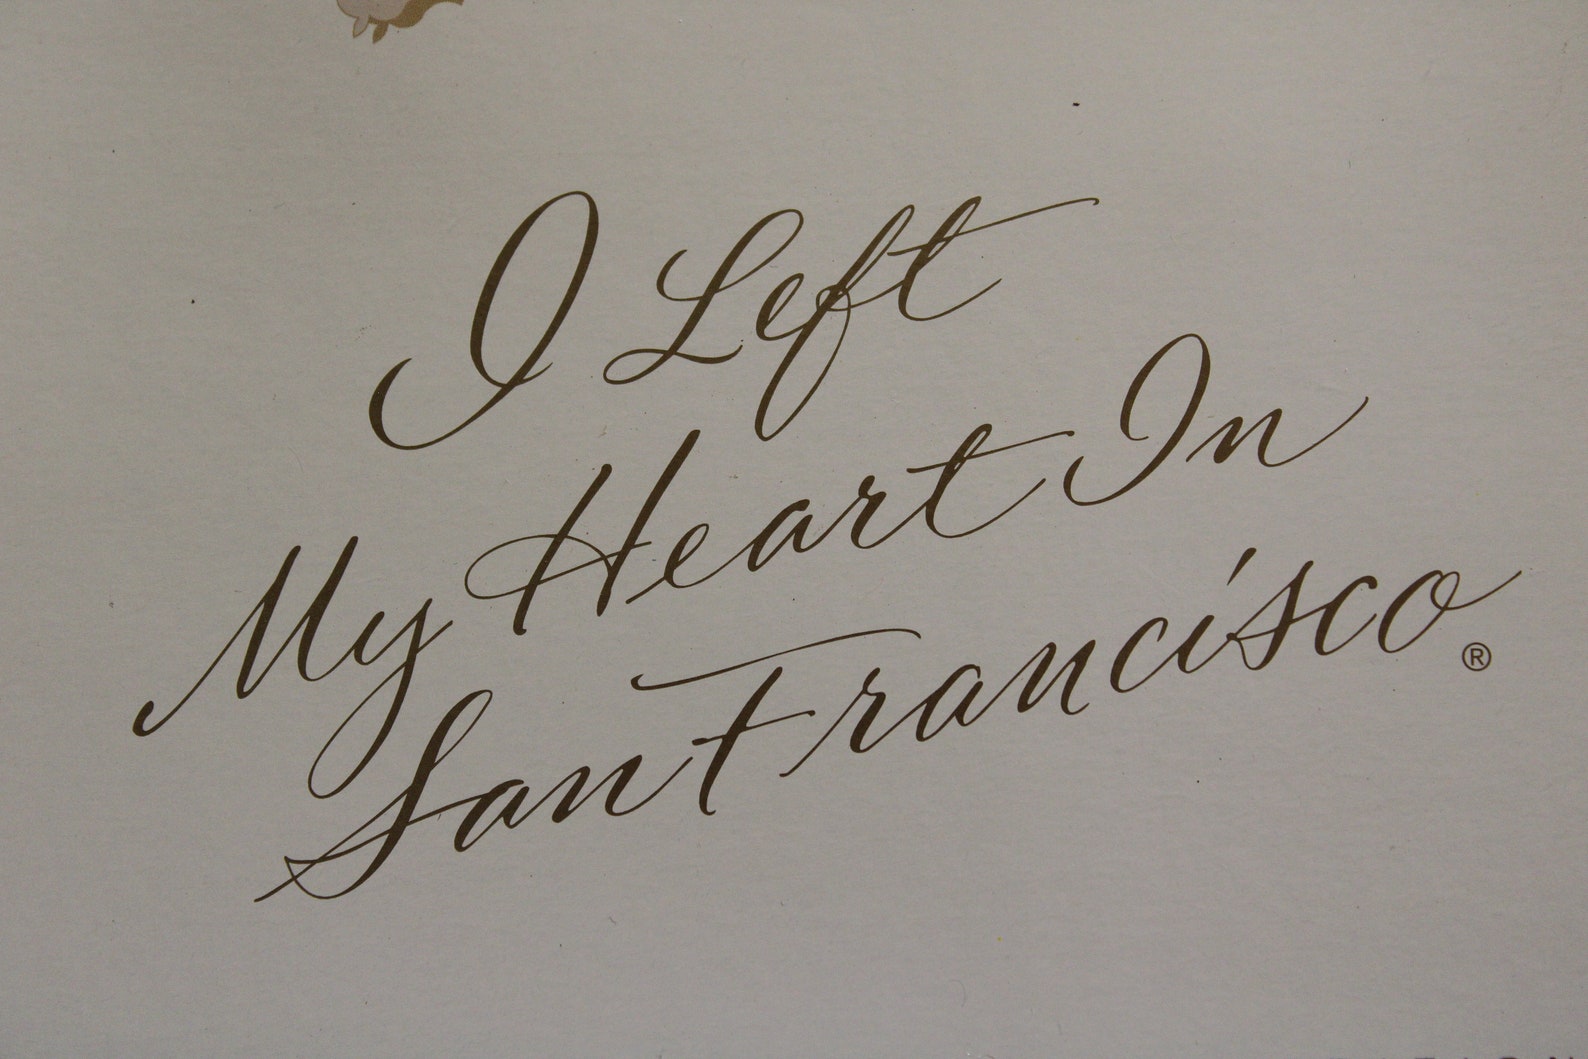 I Left
My Heart In
San Francisco®